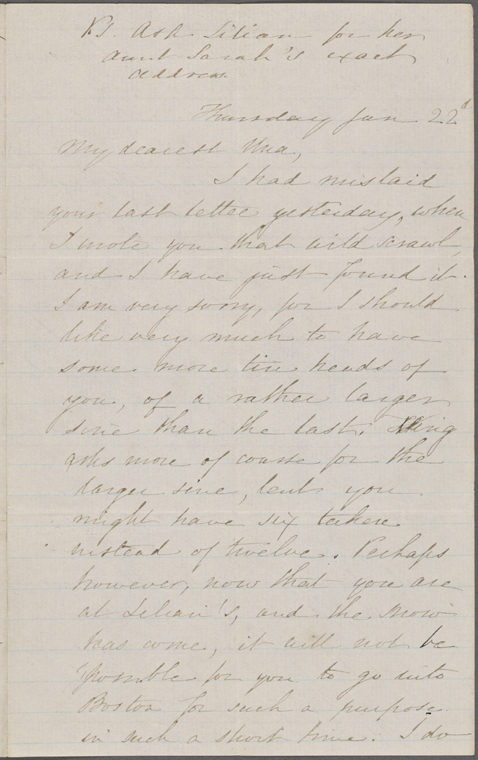 P.S. Ask Lilian for her
Aunt Sarah's exact
address
Thursday Jan. 22d
My dearest Una,
I had mislaid
your last letter yesterday, when
I wrote you that wild scrawl,
and I have just found it.
I am very sorry, for I should
like very much to have
some more tin heads of
you, of a rather larger
size than the last.
asks more of course for the
larger size, but you
might have six taken
instead of twelve. Perhaps
however, now that you are
at Lilian's, and the snow
has come, it will not be
possible for you to go into
Boston for such a purpose
in such a short time. I do